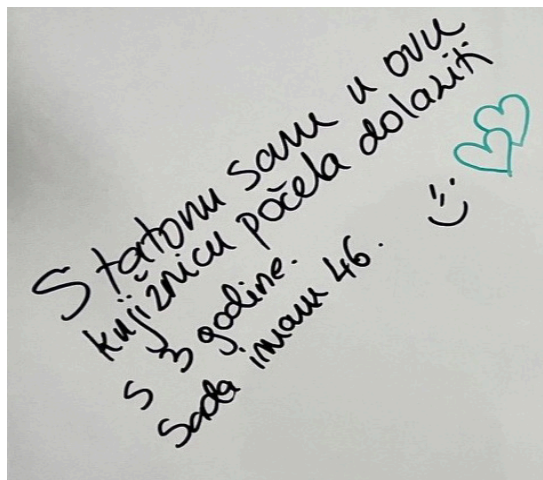 S tatom sam u ovu
knjižnicu počela dolaziti
s 3 godine.
Sada imam 46.